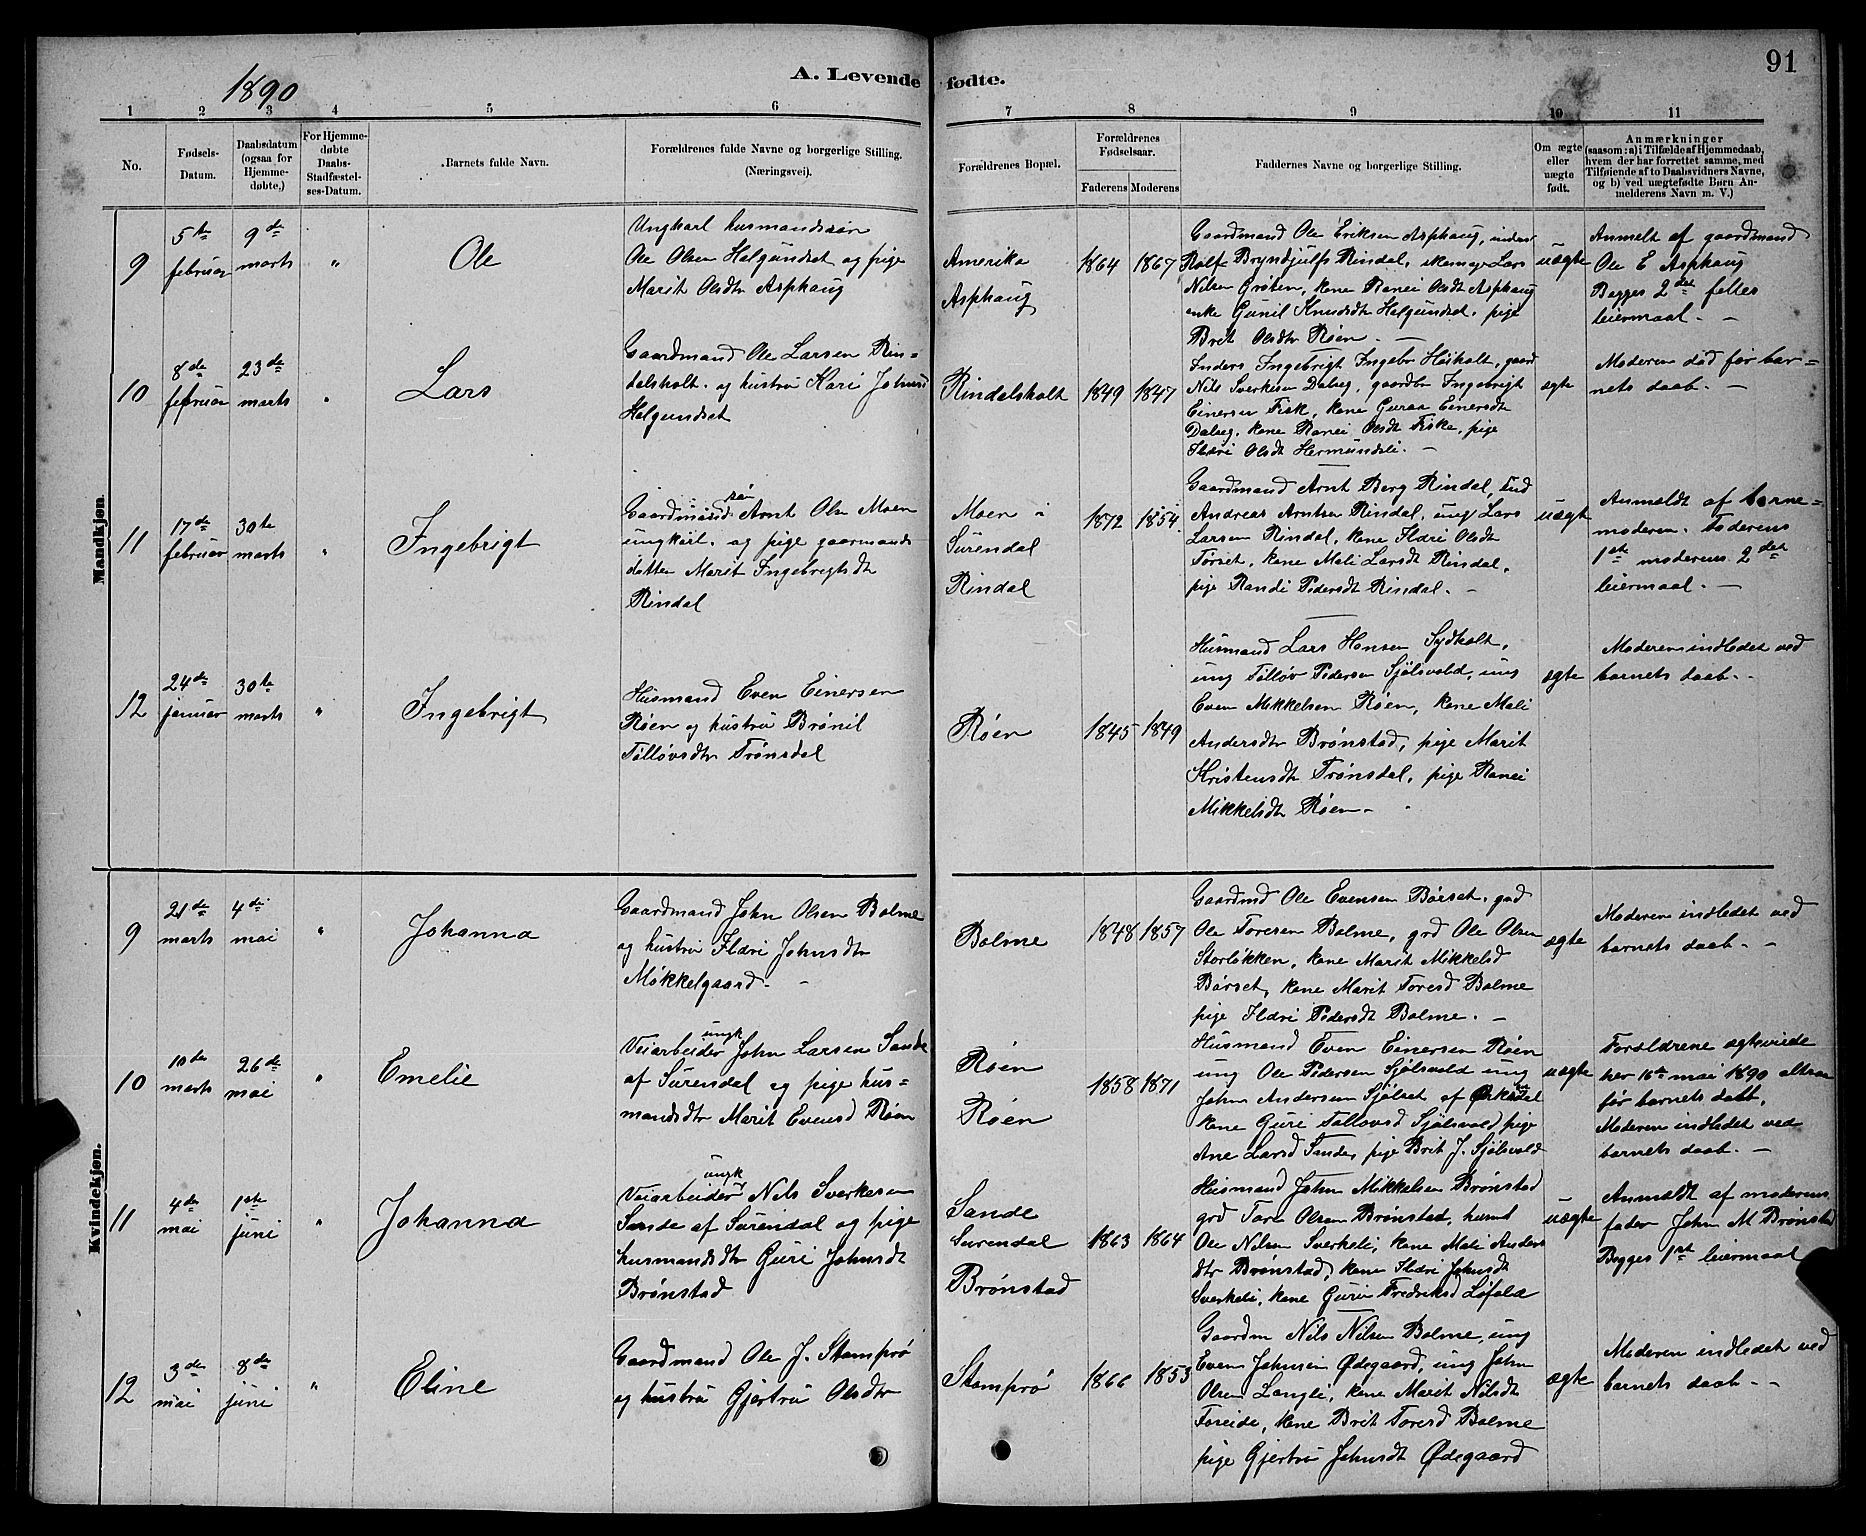 1890
A. Levende fødte.
91
1 2 3 4 5 6 7 8 9 10 11
No.
Fødsels-
Datum.
Daabsdatum
(ogsaa for
Hjemme-
døbte,)
For Hjemme-
døbte
Daabs-
Stadfæstel-
ses-Datum.
Barnets fulde Navn.
Forældrenes fulde Navne og borgerlige Stilling.
(Næringsvei).
Forældrenes Bopæl.
Forældrenes
Fødselsaar.
Faderens Moderens
Faddernes Navne og borgerlige Stilling.
Om ægte
eller
uægte
født.
Anmærkninger
(saasom: a) i Tilfælde af Hjemmedaab,
hvem der har forrettet samme, med
Tilføiende af to Daabsvidners Navne,
og b) ved uægtefødte Børn An-
melderens Navn m. V.)
Mandkjøn.
9
5te
februar
9de
marts
"
Ole
Ungkarl husmandssøn
Ole Olsen Helgundset og pige
Marit Olsdtr Asphaug
Amerika
Asphaug
1864 1867
Gaardmand Ole Eriksen Asphaug, inders
Rolf Bryndjulfs Rindal, Lars
Nilsen Grøten, kone Ranei Olsdt Asphaug
enke Gunil Knudsdt Helgundset, pige
Brit Olsdtr Røen. —
uægte
Anmelt af gaardmand
Ole E Asphaug
Begges 2det felles
leiermaal. —
10
8de
februar
23de
marts
"
Lars
Gaardmand Ole Larsen Rin=
dalsholt. og hustru Kari Johnsd
Helgundset
Rindalsholt
1849 1847
Inders Ingebrigt Ingebr Høiholt, gaard
Nils Sverkesen Dalseg, gaardbr Ingebrigt
Einersen Fisk, kone Guraa Einersdt
Dalseg, kone Ranei Olsdt Fiske, pige
Ildri Olsdt Hermundsli. —
ægte
Moderen død før bar=
nets daab. —
11
17de
februar
30te
marts
"
Ingebrigt
Gaardmand søn Arnt Olsn Moen
ungkarl. og pige gaarmands
datter Marit Ingebrigtsdtr
Rindal
Moen i
Surendal
Rindal
1872 1854
Gaardmand Arnt Berg Rindal, Ind
Andreas Arntsen Rindal, ung Lars
Larsen Rindal, kone Ildri Olsdt
Torset, kone Mali Larsdt Rindal,
pige Randi Pedersdt Rindal. —
uægte
Anmeldt af barne=
moderen. Faderens
1ste moderens 2det
leiermaal. —
12
24de
januar
30te
marts
"
Ingebrigt
Husmand Even Einersen
Røen og hustru Brønil
Tølløvsdtr Trønsdal
Røen
1845 1849
Husmand Lars Hansen Sydholt,
ung Tølløv Pedersen Sjølsvold, ung
Even Mikkelsen Røen, kone Mali
Andersdtr Brønstad, pige Marit
Kristensdtr Trønsdal, pige Ranei
Mikkelsdtr Røen.
ægte
Moderen indledet ved
barnets daab. —
Kvindekjøn.
9
21de
marts
4de
mai
"
Johanna
Gaardmand John Olsen Bolme
og hustru Ildri Johnsdtr
Møkkelgaard. —
Bolme
1848 1857
Gaardmd Ole Evensen Børset, grd
Ole Toresen Bolme, grd Ole Olsen
Storløkken, kone Marit Mikkelsd
Børset, kone Marit Toresd Bolme
pige Ildri Pedersdt Bolme. —
ægte
Moderen indledet ved
barnets daab. —
10
10de
marts
26de
mai
"
Emelie
Veiarbeider ungk John Larsen Sande
af Surendal og pige hus=
mandsdtr Marit Evensd Røen
Røen
Røen
1858 1871
Husmand Even Einersen Røen
ung Ole Pedersen Sjølsvold ung
John Andersen Sjølset af Ørkedal
kone Guri Tølløvsd Sjølsvold pige
Ane Larsd Sande, pige Brit J. Sjølsvold
uægte
Forældrene ægteviede
her 16de mai 1890 altsaa
før barnets daab,
Moderen indledet ved
barnets daab. —
11
4de
mai
1ste
juni
"
Johanna
Veiarbeider ungk Nils Sverkesen
Sande af Surendal og pige
husmandsdtr Guri Johnsdt
Brønstad
Sande
Surendal
Brønstad
1863 1864
Husmand John Mikkelsen Brønstad
grd Tore Olsen Brønstad, husmd
Ole Nilsen Sverkeli, kone Mali Anders
dtr Brønstad, kone Ildri Johnsdt
Sverkeli, kone Guru Fredriksd Løfald
uægte
Anmeldt af moderens
fader John M Brønstad
Begges 1ste leiermaal
12
3de
mai
8de
juni
"
Eline
Gaardmand Ole J. Stomprø
og hustru Gjertru Olsdtr
Stomprø
1866 1853
Gaardm Nils Nilsen Bolme, ung
Even Johnsen Ødegaard, ung John
Olsen Langli, kone Marit Nilsdt
Foreide, kone Brit Toresd Bolme
pige Gjertru Johnsdt Ødegaard
ægte
Moderen indledet ved
barnets daab. —